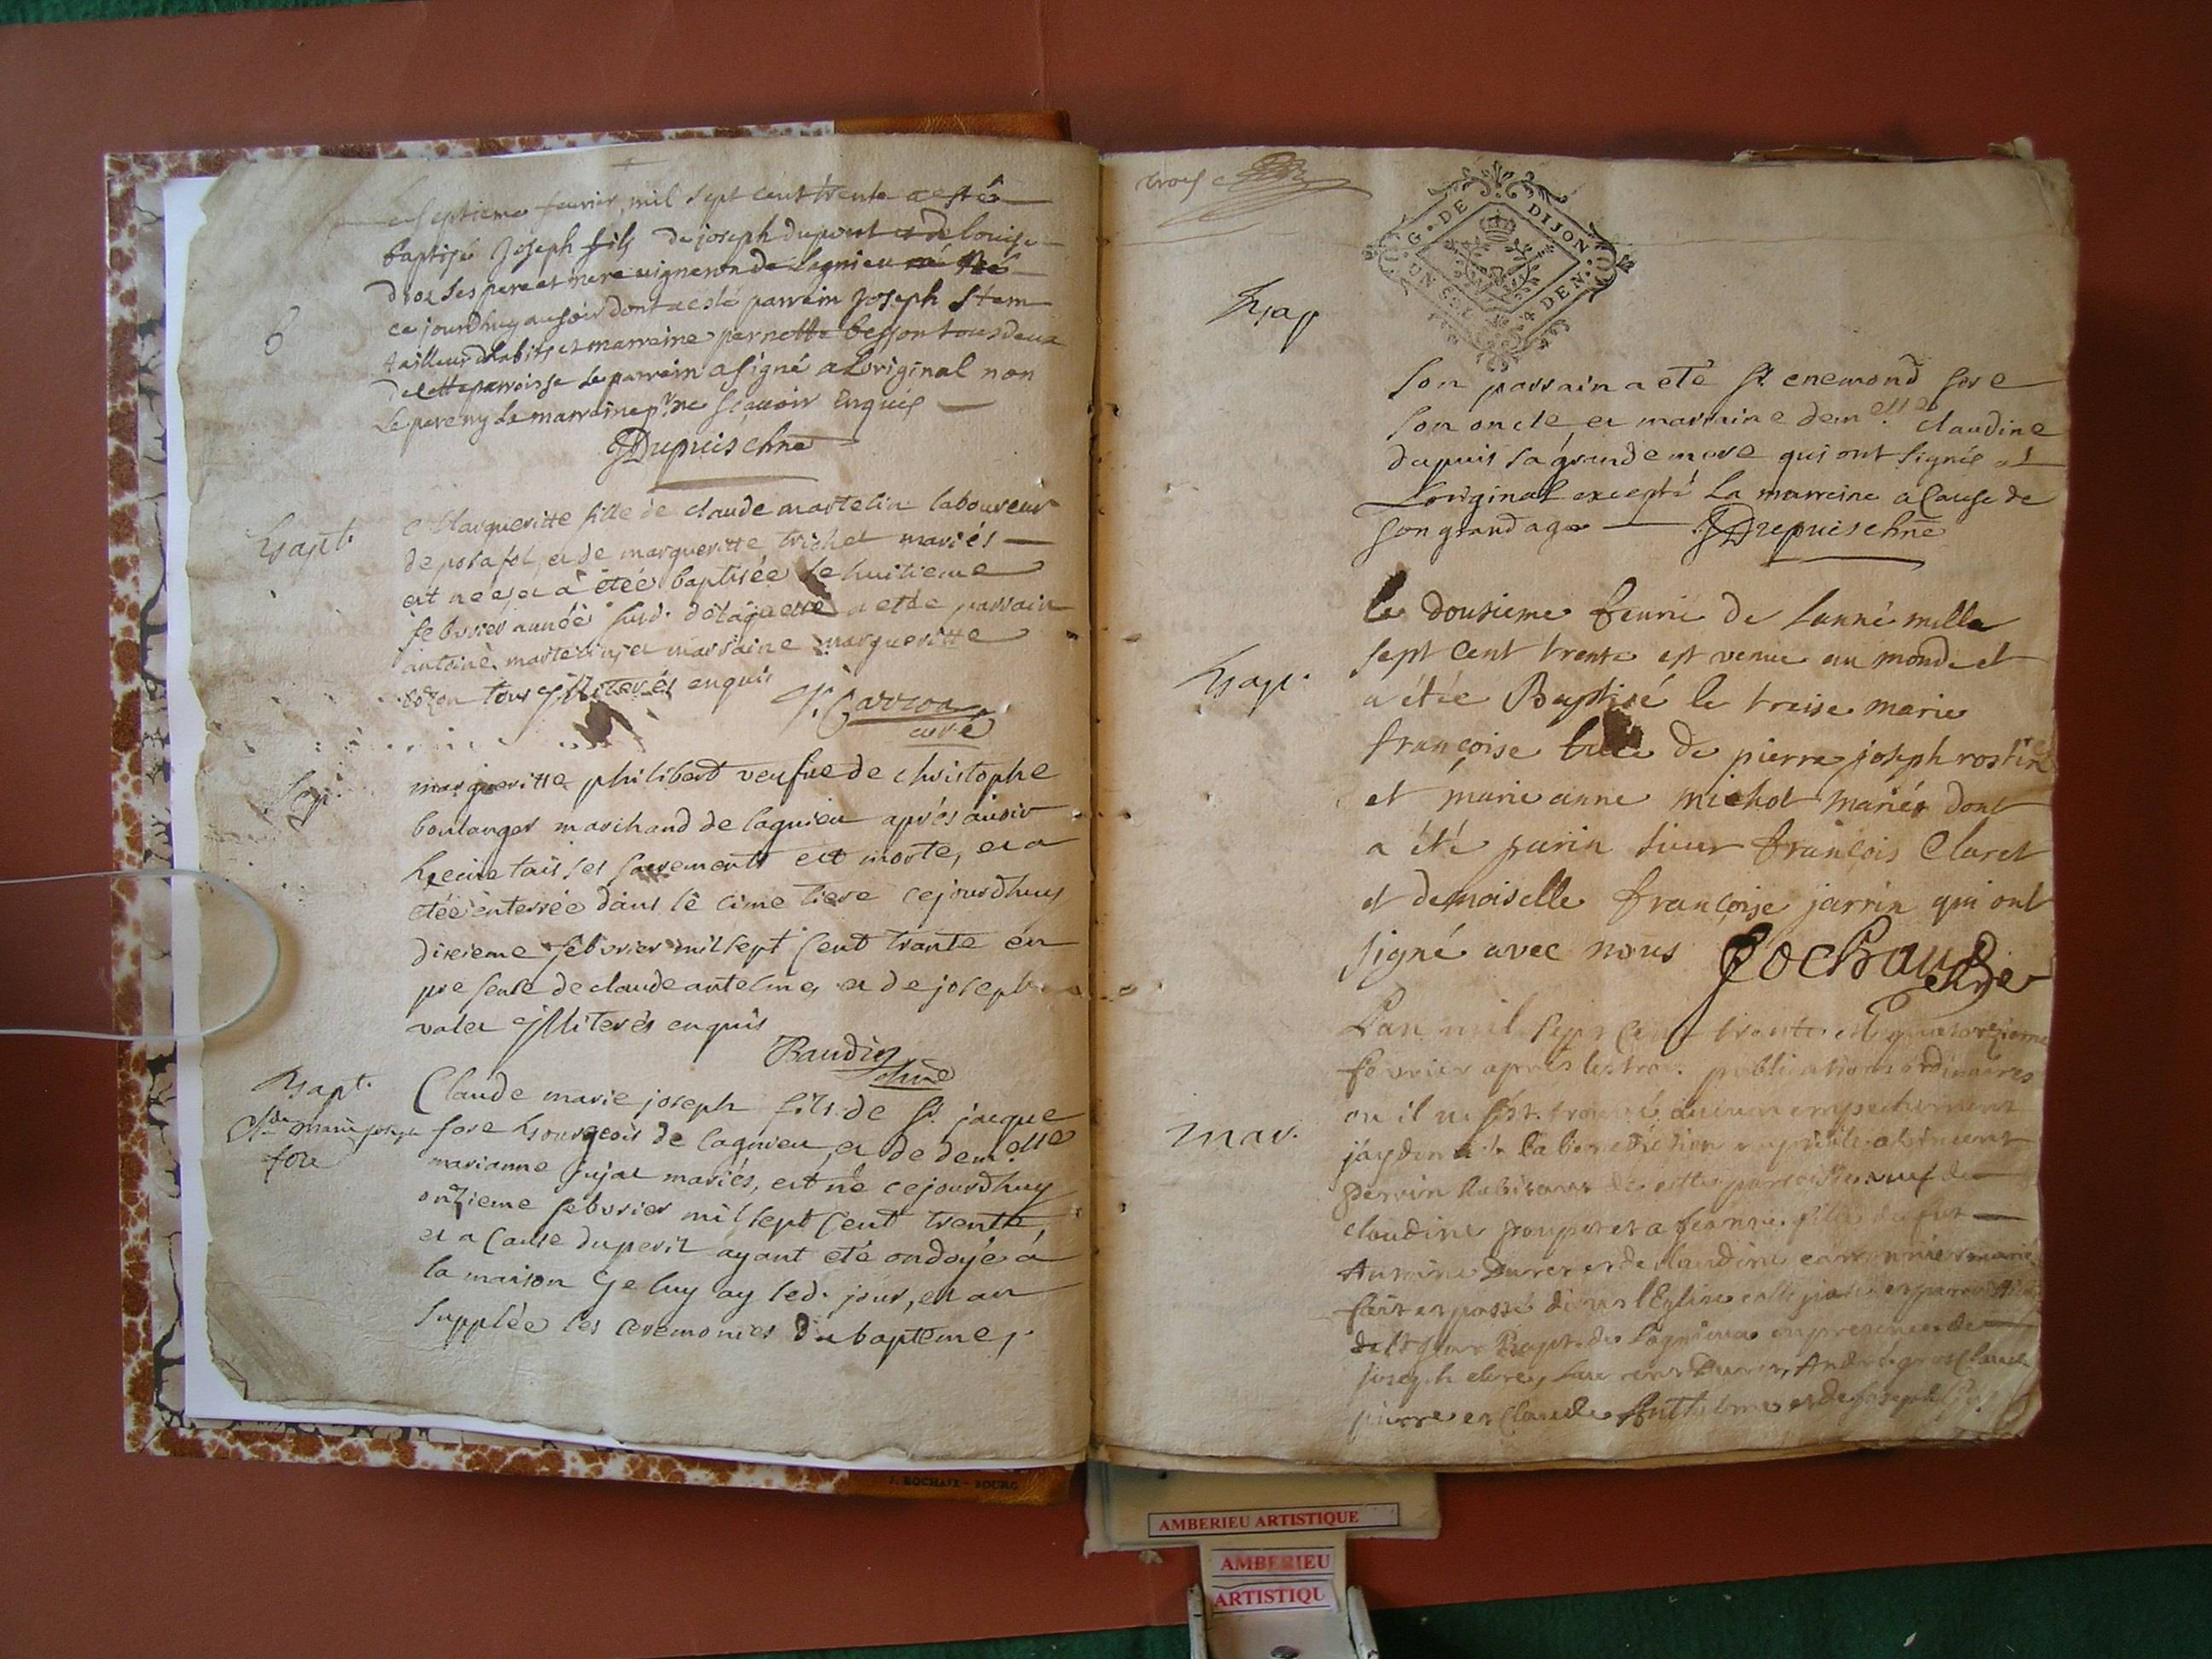 septieme fevrier mil sept cent trente a esté
baptisé Joseph fils de joseph dupont et de louise
droz ses pere et mere vigneron de Lagnieu né
ce jourdhuy au soir dont a esté parrein Joseph
tailleur dhabits et marreine pernette besson tous deux
de cette parroisse le parrein a signé a Loriginal non
Le pere ny la marreine pr ne sçavoir Enquis
B
JDupuis chne
Bapt.
Margueritte fille de claude martelin laboureur
de posafol, et de margueritte trichet mariés
est née, et a étéé baptisée le huitieme
febvrier année susd. de laquelle a etée parrain
antoine martelin, et marraine margueritte
tous illiterés enquis
J. Carron
curé
Sep.
margueritte philibert veufve de christophe
boulanger marchand de lagnieu aprés avoir
Receu tous ses sacrements est morte, et a
étéé enterrée dans le cimetiere cejourdhuy
dixieme febvrier mil sept cent trante en
presence de claude antelme, et de joseph
valet illiterés enquis
Baudin
chne
Bapt.
Cl.de marie joseph
fore
Claude marie joseph fils de Sr. jacque
fore Bourgeois de lagnieu, et de dem.elle
marianne jujat mariés, est né cejourdhuy
onzieme febvrier mil sept cent trente,
et a cause du peril ayant eté ondoyé à
la maison je luy ay led. jour, et an
supplée les ceremonies du bapteme,
trois
G. DE DIJON
UN DEN.
Bap
son parrain a eté Sr. enemond fore
son oncle, et marraine dem.elle claudine
dupuis sa grande mere qui ont signés a
Loriginal excepté La marreine a Cause de
son grand age JDupuis chne
Bapt.
le dousieme fevrié de lanné mille
sept cent trente est venue au monde et
a étée Baptisé le treise marie
françoise de pierre joseph rostin
et marie anne michot mariés dont
a été parin sieur françois Claret
et demoiselle françoise jarrin qui ont
signé avec nous Cochaud chne
mar.
Lan mil sept cent trente et quatorzieme
fevrier aprés les trois publications ordinaires
ou il ne sest trouvé aucun empechement
jay donné la benediction nuptiale a
perrin habitant de cette parroisse veuf de
claudine poupet et a jeanne fille de
Antoine Duret et de claudine mariés
fait et passé dans lEglise
de St Jean Bapt. de Lagnieu en presence de
joseph Duret, André gros Claude
pierre et Claude Anthelme et de joseph
J. ROCHAIX - BOURG
AMBERIEU ARTISTIQUE
AMBERIEU
ARTISTIQU